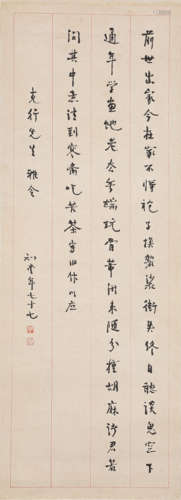 前世出家今在家不將袍子換袈裟街頭終日聽談鬼窓下
通年学畫蛇老去無端玩骨董閑来随分種胡麻君若
問其中意請到寒齋吃苦茶旧作以應
克行先生 雅令
知堂年七十七